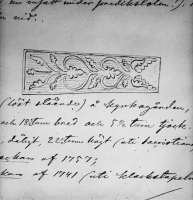 en infatt under predikstolen
en nid.
(löst stående) å kyrkogården,
och 18 tum bred och 5½ tum tjock.
dåligt, 22 tum högt (uti sacristian
ockan af 1757;
kan af 1741 (uti klockstapeln